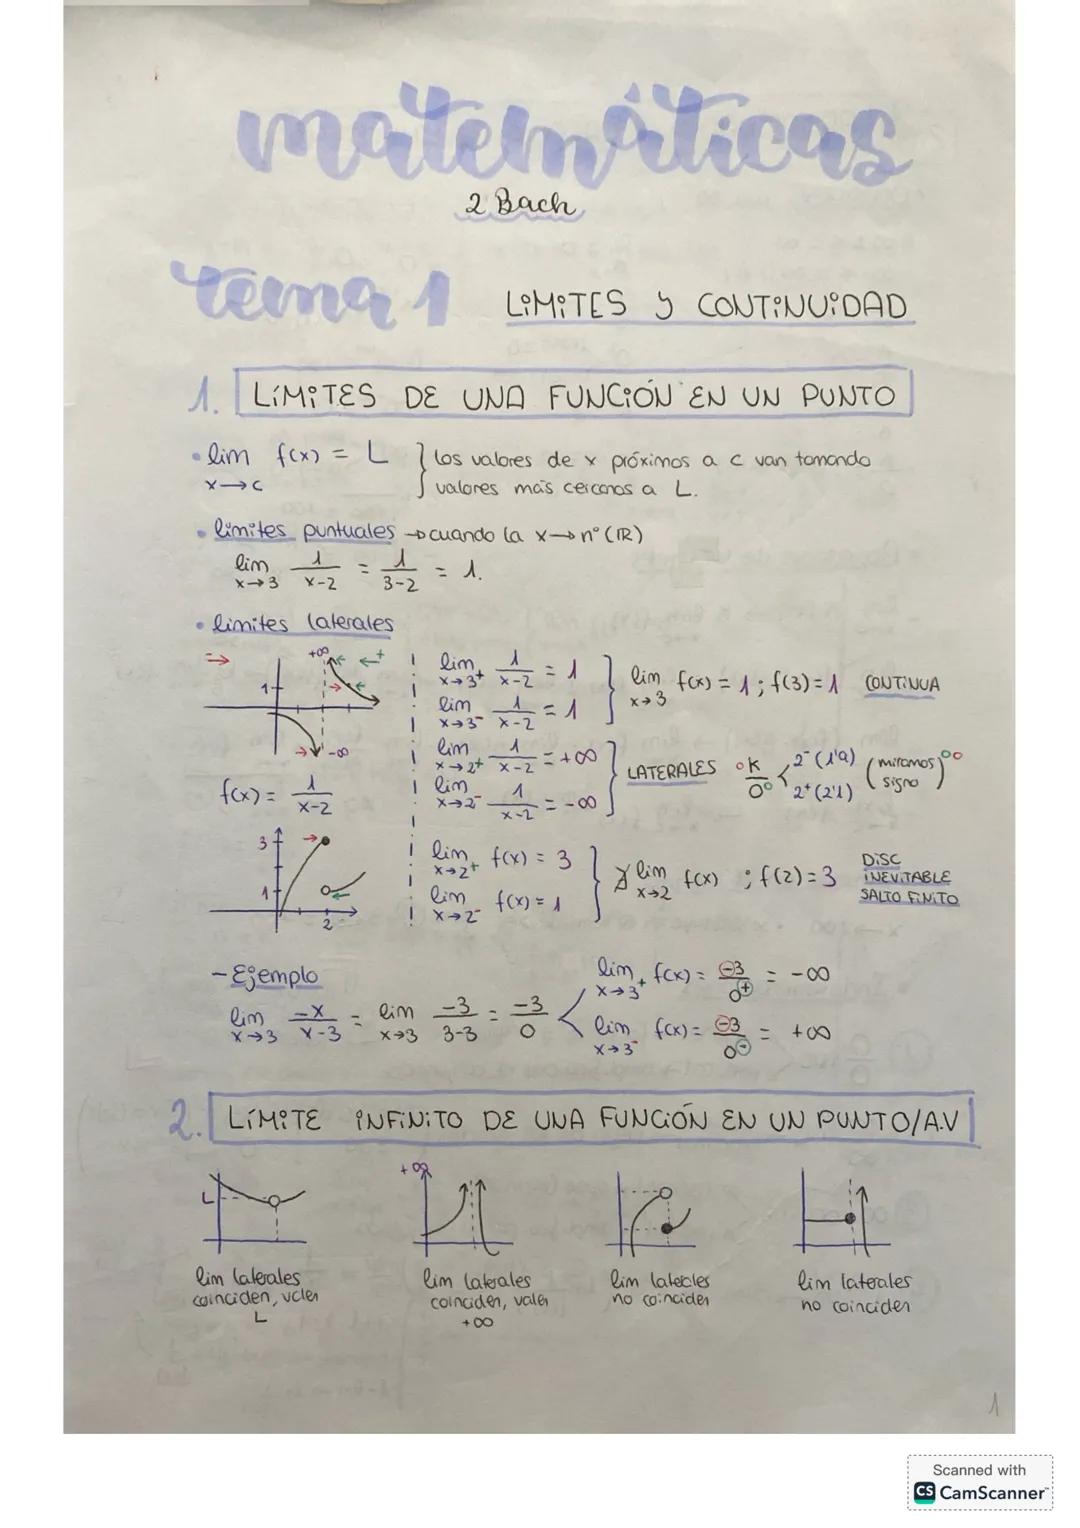 matemáticas
2 Bach
tema 1 LÍMITES Y CONTINUIDAD
1. LÍMITES DE UNA FUNCIÓN EN UN PUNTO
• lim f(x) = L } los valores de x próximos a c van tomando
x→c valores más cercanos a L.
• límites puntuales → cuando la x → nº (ℝ)
lim x→3 1/(x-2) = 1/(3-2) = 1.
• límites laterales
+∞ +
1
-∞
f(x) = 1/(x-2)
lim x→3+ 1/(x-2) = 1
lim x→3- 1/(x-2) = 1 } lim x→3 f(x) = 1 ; f(3) = 1 CONTINUA
lim x→2+ 1/(x-2) = +∞
lim x→2- 1/(x-2) = -∞ } LATERALES K/0 < 2- (1'9) 2+ (2'1) (miramos signo) ∞
3
1
2
lim x→2+ f(x) = 3
lim x→2- f(x) = 1 } ∄ lim x→2 f(x) ; f(2) = 3 DISC INEVITABLE SALTO FINITO
- Ejemplo
lim x→3 -x/(x-3) = lim x→3 -3/(3-3) = -3/0 <
lim x→3+ f(x) = -3/0+ = -∞
lim x→3- f(x) = -3/0- = +∞
2. LÍMITE INFINITO DE UNA FUNCIÓN EN UN PUNTO/A.V
L
lim laterales
coinciden, valen
L
+∞
lim laterales
coinciden, valen
+∞
lim laterales
no coinciden
lim laterales
no coinciden
1
Scanned with
CS CamScanner